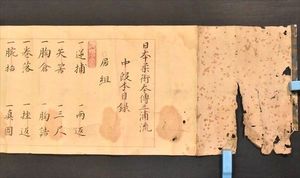 日本柔術本傳三浦流
中段本目録
居組
一逆捕 一両返
一矢筈 一三尺
一胸倉 一胸詰
一巻落 一挫返
一腕拾 一真固